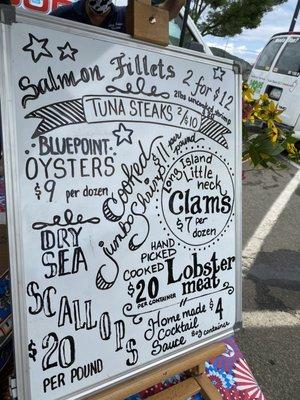 Salmon Fillets 2 for $12
2lbs uncounted shrimp
TUNA STEAKS 2/$10
BLUEPOINT
OYSTERS
$9 per dozen
Cooked
Jumbo Shrimp $11 per pound
Long Island
Little
neck
Clams
$7 per
dozen
DRY
SEA
SCALLOPS
$20
PER POUND
HAND
PICKED
COOKED Lobster
meat
$20
PER CONTAINER
Home made $4
Cocktail
Sauce 8oz container